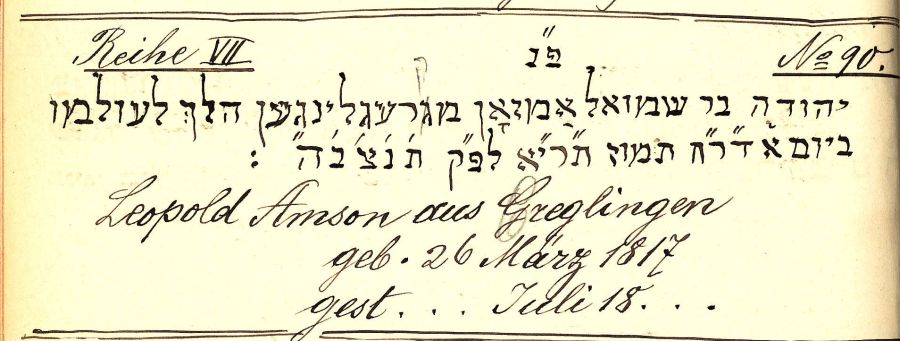 Reihe VII פ"נ No 90.
יהודה בר שמואל אמזאן מגרעגלינגען הלך לעולמו
ביום א' ד"ר"ח תמוז תרי"א לפ"ק ת'נ'צ'ב'ה" :
Leopold Amson aus Greglingen
geb. 26 März 1817
gest . . . Juli 18. . .